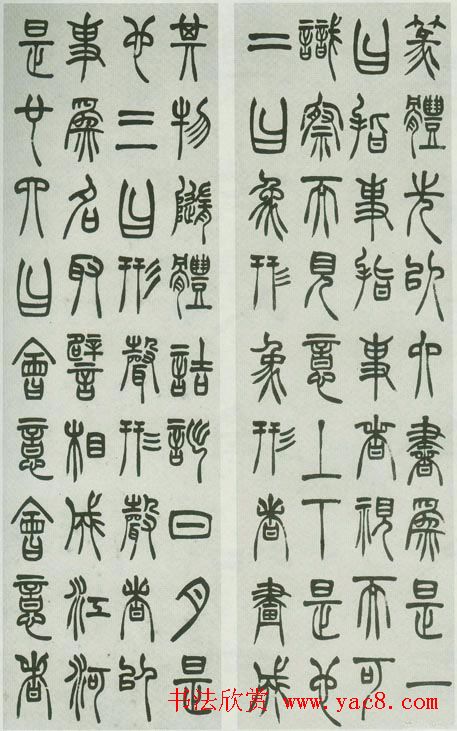 篆體先以六書爲是一
曰指事指事者視而可
識察而見意上下是也
二曰象形象形者畫成
其物隨體詰詘日月是
也三曰形聲形聲者以
事爲名取譬相成江河
是也四曰會意會意者
书法欣赏 www.yac8.com